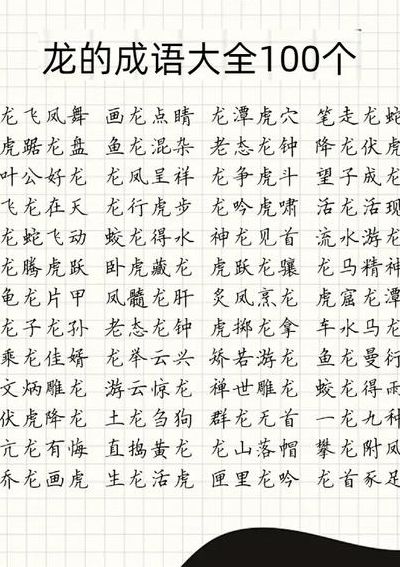 龙的成语大全100个
龙飞凤舞 画龙点睛 龙潭虎穴 笔走龙蛇
虎踞龙盘 鱼龙混杂 老态龙钟 降龙伏虎
叶公好龙 龙凤呈祥 龙争虎斗 望子成龙
飞龙在天 龙行虎步 龙吟虎啸 活龙活现
龙蛇飞动 蛟龙得水 神龙见首 流水游龙
龙腾虎跃 卧虎藏龙 虎跃龙骧 龙马精神
龟龙片甲 凤髓龙肝 炙凤烹龙 虎窟龙潭
龙子龙孙 老态龙钟 虎掷龙拿 车水马龙
乘龙佳婿 龙举云兴 矫若游龙 鱼龙曼衍
文炳雕龙 游云惊龙 禅世雕龙 蛟龙得雨
伏虎降龙 土龙刍狗 群龙无首 一龙九种
亢龙有悔 直捣黄龙 龙山落帽 攀龙附凤
乔龙画虎 生龙活虎 匣里龙吟 龙首豕足